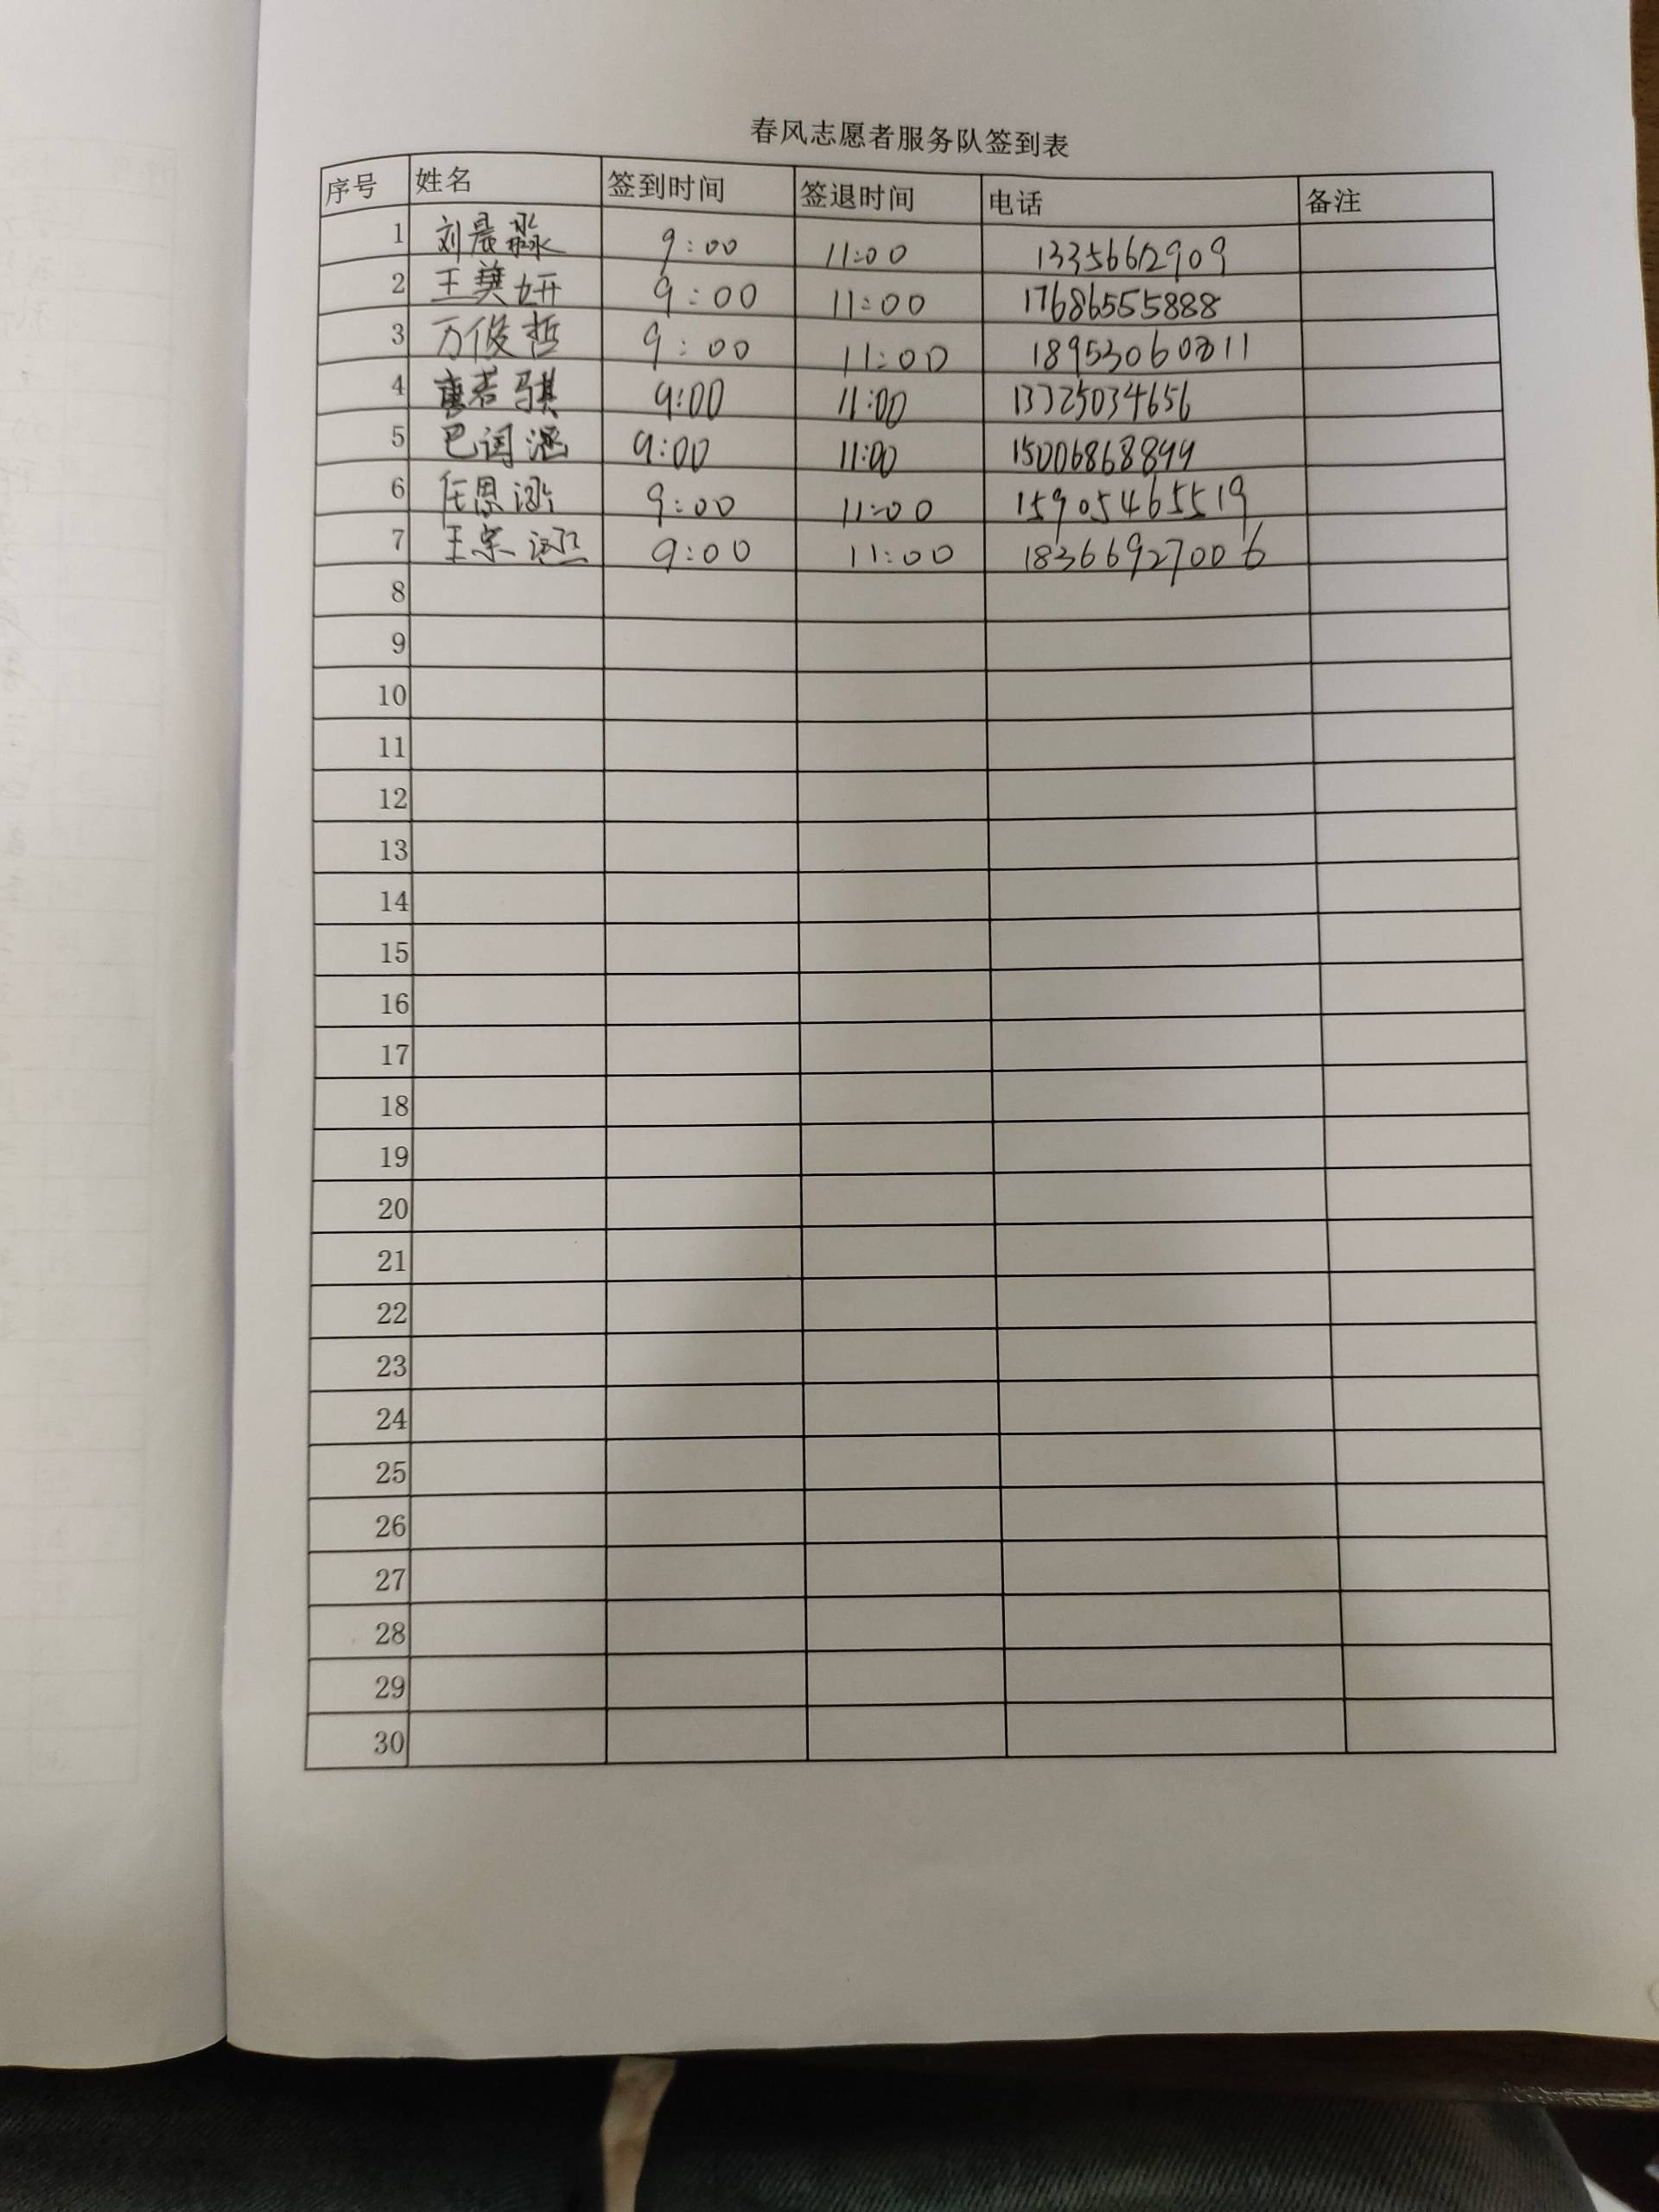 春风志愿者服务队签到表
序号 姓名 签到时间 签退时间 电话 备注
1 刘晨淼 9:00 11:00 13356612909
2 王美妍 9:00 11:00 17686555888
3 万俊哲 9:00 11:00 18953060811
4 唐若骐 9:00 11:00 13325034656
5 巴闰涵 9:00 11:00 15006868899
6 任思涵 9:00 11:00 15905465519
7 王宗 9:00 11:00 18366927006
8
9
10
11
12
13
14
15
16
17
18
19
20
21
22
23
24
25
26
27
28
29
30